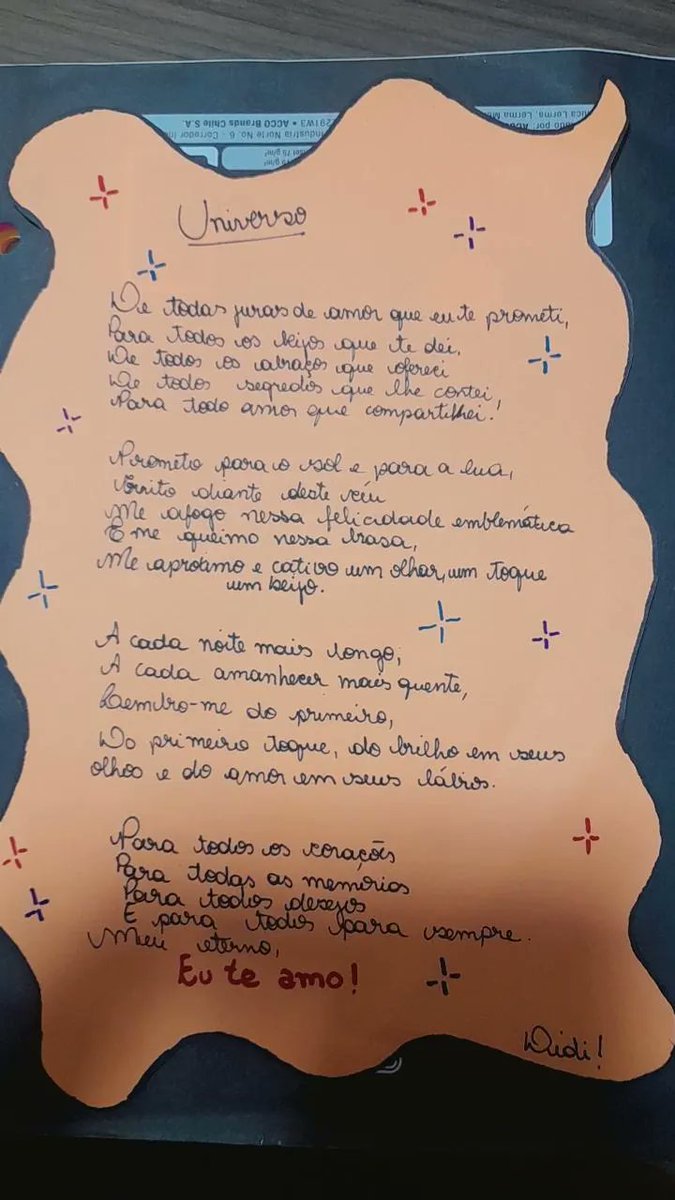 291W3 • ACCO Brands Chile S.A.
Industria Norte No. 6 - Corredor
Universo
De todas juras de amor que eu te prometi,
Para todos os beijos que te dei,
De todos os abraços que ofereci
De todos segredos que lhe contei,
Para todo amor que compartilhei!
Prometo para o sol e para a lua,
Grito diante deste véu
Me afogo nessa felicidade emblemática
E me queimo nessa brasa,
Me aproximo e cativo um olhar, um toque
um beijo.
A cada noite mais longo,
A cada amanhecer mais quente,
Lembro-me do primeiro,
Do primeiro toque, do brilho em seus
olhos e do amor em seus lábios.
Para todos os corações
Para todas as memórias
Para todos desejos
E para todos para sempre.
Meu eterno,
Eu te amo!
Didi!